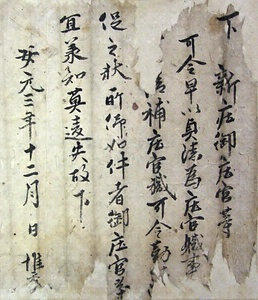 下　新庄御庄官等
可令早以真清為庄官軄事
補庄官軄可令勤
促之状所仰如件者御庄官等
宜承知莫違失故下
安元三年十二月　日